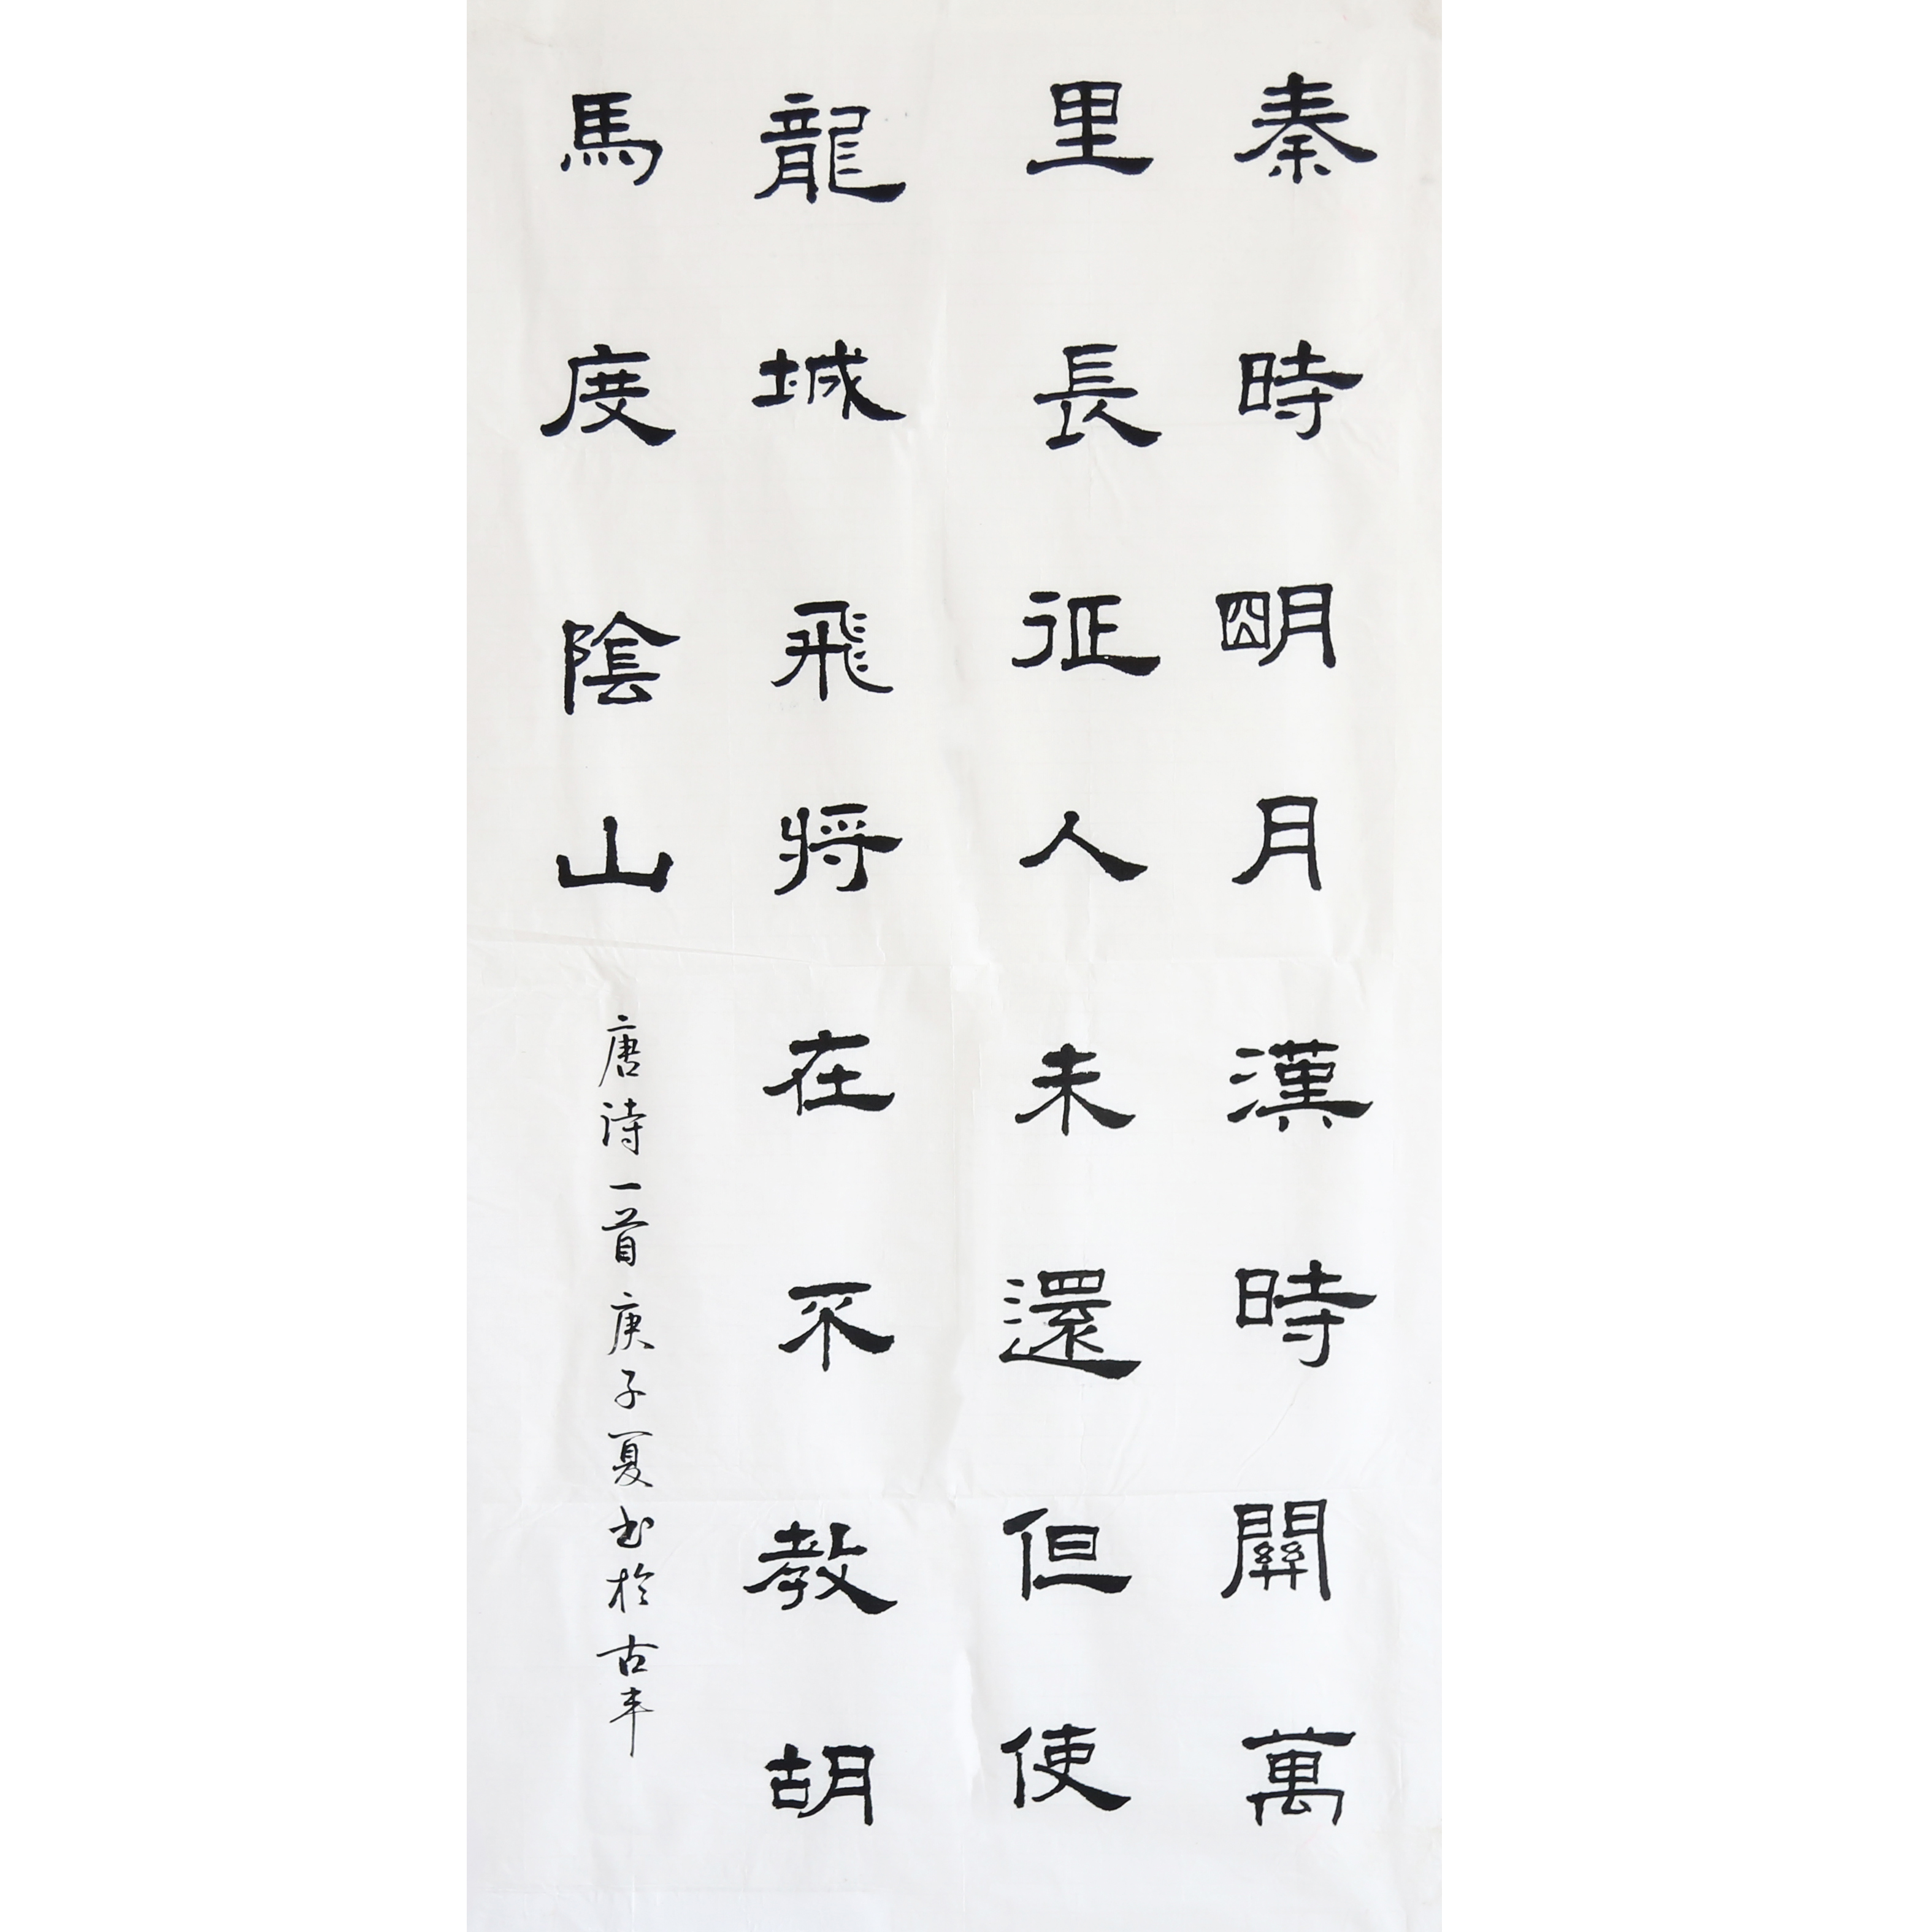 秦時明月漢時關萬
里長征人未還但使
龍城飛將在不教胡
馬度陰山
唐诗一首庚子夏书於古丰